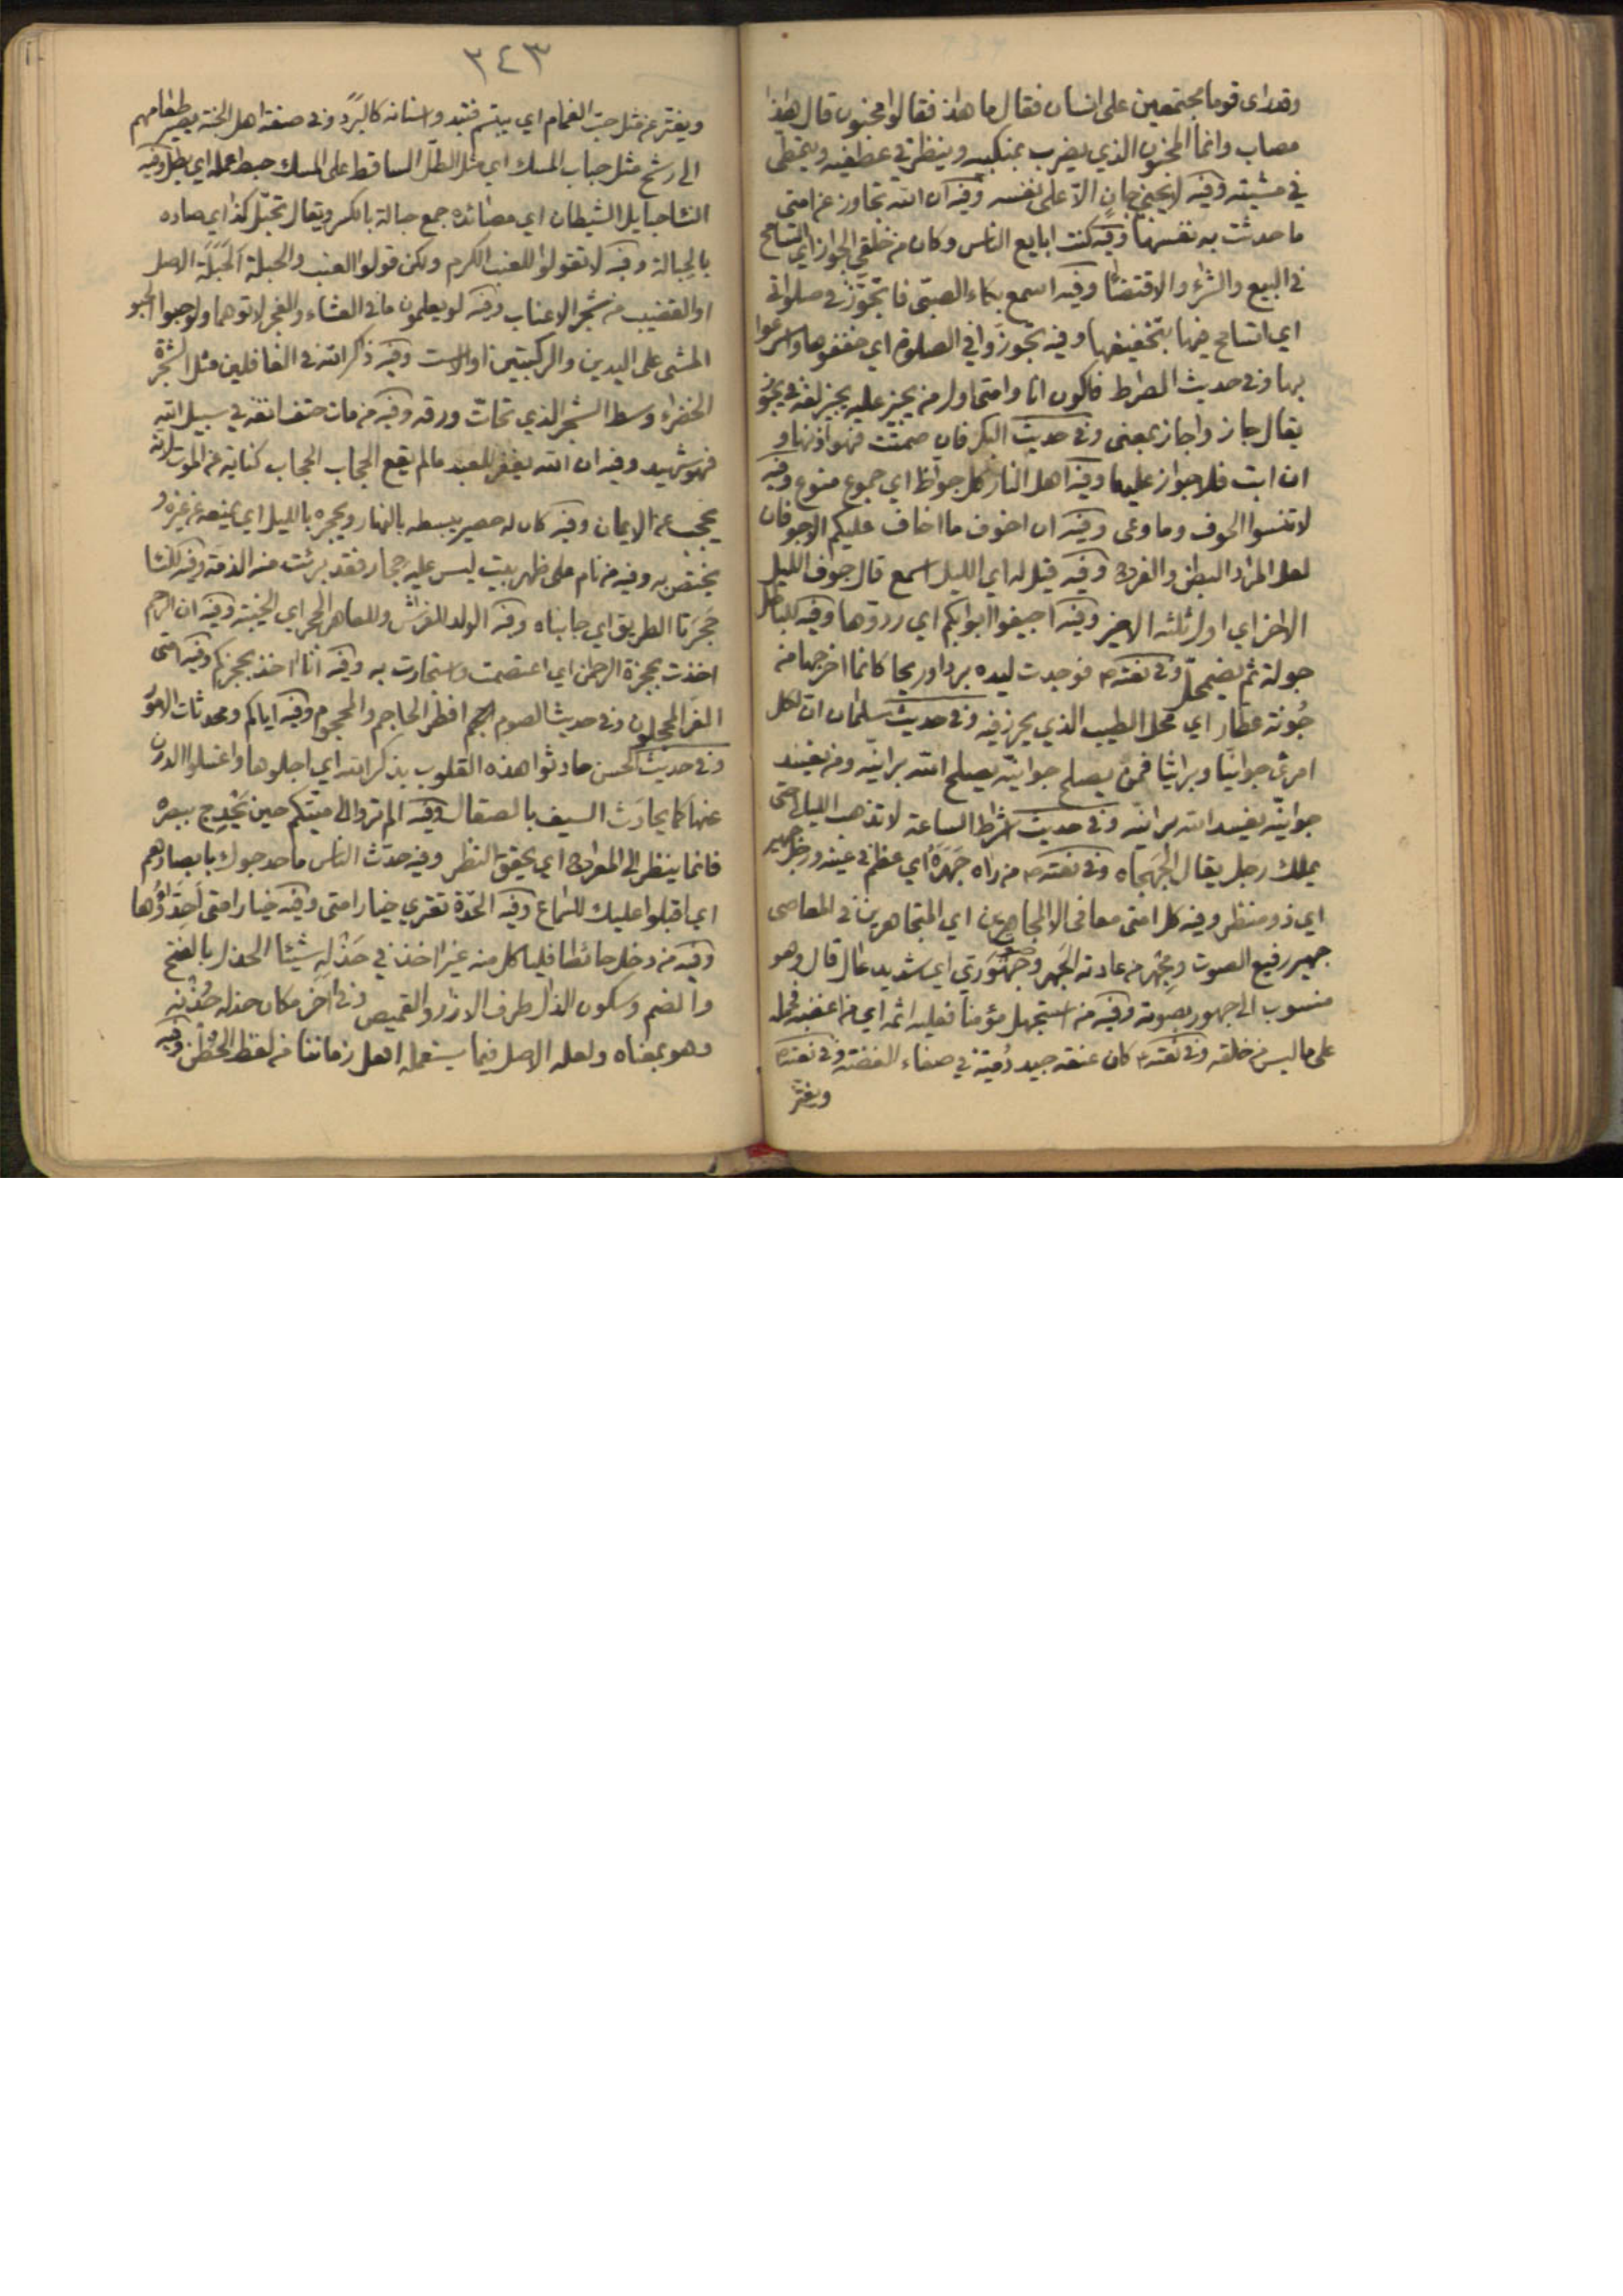 وقد راى قوما مجتمعين على انسان فقال ما هذا فقالوا مجنون قال هذا
مصاب وانما المجنون الذي يضرب بمنكبيه وينظر في عطفيه ويتمطى
في مشيته وفيه لا يجني جان الا على نفسه وفيه ان الله تجاوز عن امتي
ما حدثت به نفسها وفيه كنت ابايع الناس وكان من خلقي الجواز اي التسامح
في البيع والشراء والاقتضاء وفيه اسمع بكاء الصبي فاتجوز في صلواتي
اي اتسامح فيها بتخفيفها وفيه تجوزوا في الصلوة اي خففوها واسرعوا
بها وفي حديث الصراط فاكون انا وامتي اول من يجيز عليه يجيز لغة في يجوز
يقال جاز واجاز بمعنى وفي حديث البكر فان صمتت فهو اذنها و
ان ابت فلا جواز عليها وفيه اهل النار كل جواظ اي جموع منوع وفيه
لا تنسوا الجوف وما وعى وفيه ان اخوف ما اخاف عليكم الاجوفان
لعل المراد البطن والفرج وفيه قيل له اي الليل اسمع قال جوف الليل
الاخر اي اول ثلثه الاخير وفيه اجيفوا ابوابكم اي ردوها وفيه للباطل
جولة ثم يضمحل وفي نعته م فوجدت ليده بردا وريحا كانما اخرجها من
جونة عطار اي محل الطيب الذي يحرز فيه وفي حديث سلمان ان لكل
امرئ جوانيا وبرانيا فمن يصلح جوانيه يصلح الله برانيه ومن يفسد
جوانيه يفسد الله برانيه وفي حديث اشراط الساعة لا تذهب الليالي حتى
يملك رجل يقال الجهجاه وفي نعته م من راه جهره اي عظم في عينه ورجل جهير
اي ذو منظر وفيه كل امتي معافى الا المجاهرين اي المتجاهرين في المعاصي
جهير رفيع الصوت ومجهر من عادته الجهر وصوت جهوري اي شديد عال قال وهو
منسوب الى جهور بصوته وفيه من استجهل مؤمنا فعليه اثمه اي من اغضبه فحمله
على ما ليس من خلقه وفي نعته م كان عنقه جيد دمية في صفاء الفضة وفي نعته م
ويفتر
٣٤٣
ويفتر عن مثل حب الغمام اي يبتسم فتبدو اسنانه كالبرد وفي صفة اهل الجنة يصير طعامهم
الى رشح مثل حباب المسك اي مثل الطل الساقط على المسك حبط عمله اي بطل وفيه
النساء حبايل الشيطان اي مصائده جمع حبالة بالكسر ويقال تحبل كذا اي صاده
بالحبالة وفيه لا تقولوا للعنب الكرم ولكن قولوا العنب والحبلة الحبلة الاصل
او القضيب من شجر الاعناب وفيه لو يعلمون ما في العشاء والفجر لاتوهما ولو حبوا الحبو
المشي على اليدين والركبتين او الاست وفيه ذاكر الله في الغافلين مثل الشجرة
الخضراء وسط الشجر الذي تحات ورقه وفيه من مات حتف انفه في سبيل الله
فهو شهيد وفيه ان الله يغفر للعبد ما لم يقع الحجاب الحجاب كناية عن الموت لانه
يحجب عن الايمان وفيه كان له حصير يبسطه بالنهار ويحجره بالليل اي يمنعه عن غيره و
يختص به وفيه من نام على ظهر بيت ليس عليه حجار فقد برئت منه الذمة وفيه للنساء
حجرتا الطريق اي جانباه وفيه الولد للفراش وللعاهر الحجر اي الخيبة وفيه ان الرحم
اخذت بحجزة الرحمن اي اعتصمت واستجارت به وفيه انا اخذ بحجزكم وفيه امتي
الغر المحجلون وفي حديث الصوم افطر الحاجم والمحجوم وفيه اياكم ومحدثات الامور
وفي حديث الحسن حادثوا هذه القلوب بذكر الله اي اجلوها واغسلوا الدرن
عنها كما يحادث السيف بالصقال وفيه الم تروا الى ميتكم حين يحدج ببصره
فانما ينظر الى المعراج اي يحقق النظر وفيه حدث الناس ما حدجوك بابصارهم
اي اقبلوا عليك للسماع وفيه الحدة تعتري خيار امتي وفيه خيار امتي احداؤها
وفيه من دخل حائطا فلياكل منه غير اخذ في حذله شيئا الحذل بالفتح
والضم وسكون الذال طرف الازار والقميص وفي اخر مكان حذله حذنه
وهو بمعناه ولعله الاصل فيما يستعمله اهل زماننا من لفظ الحضن وفيه